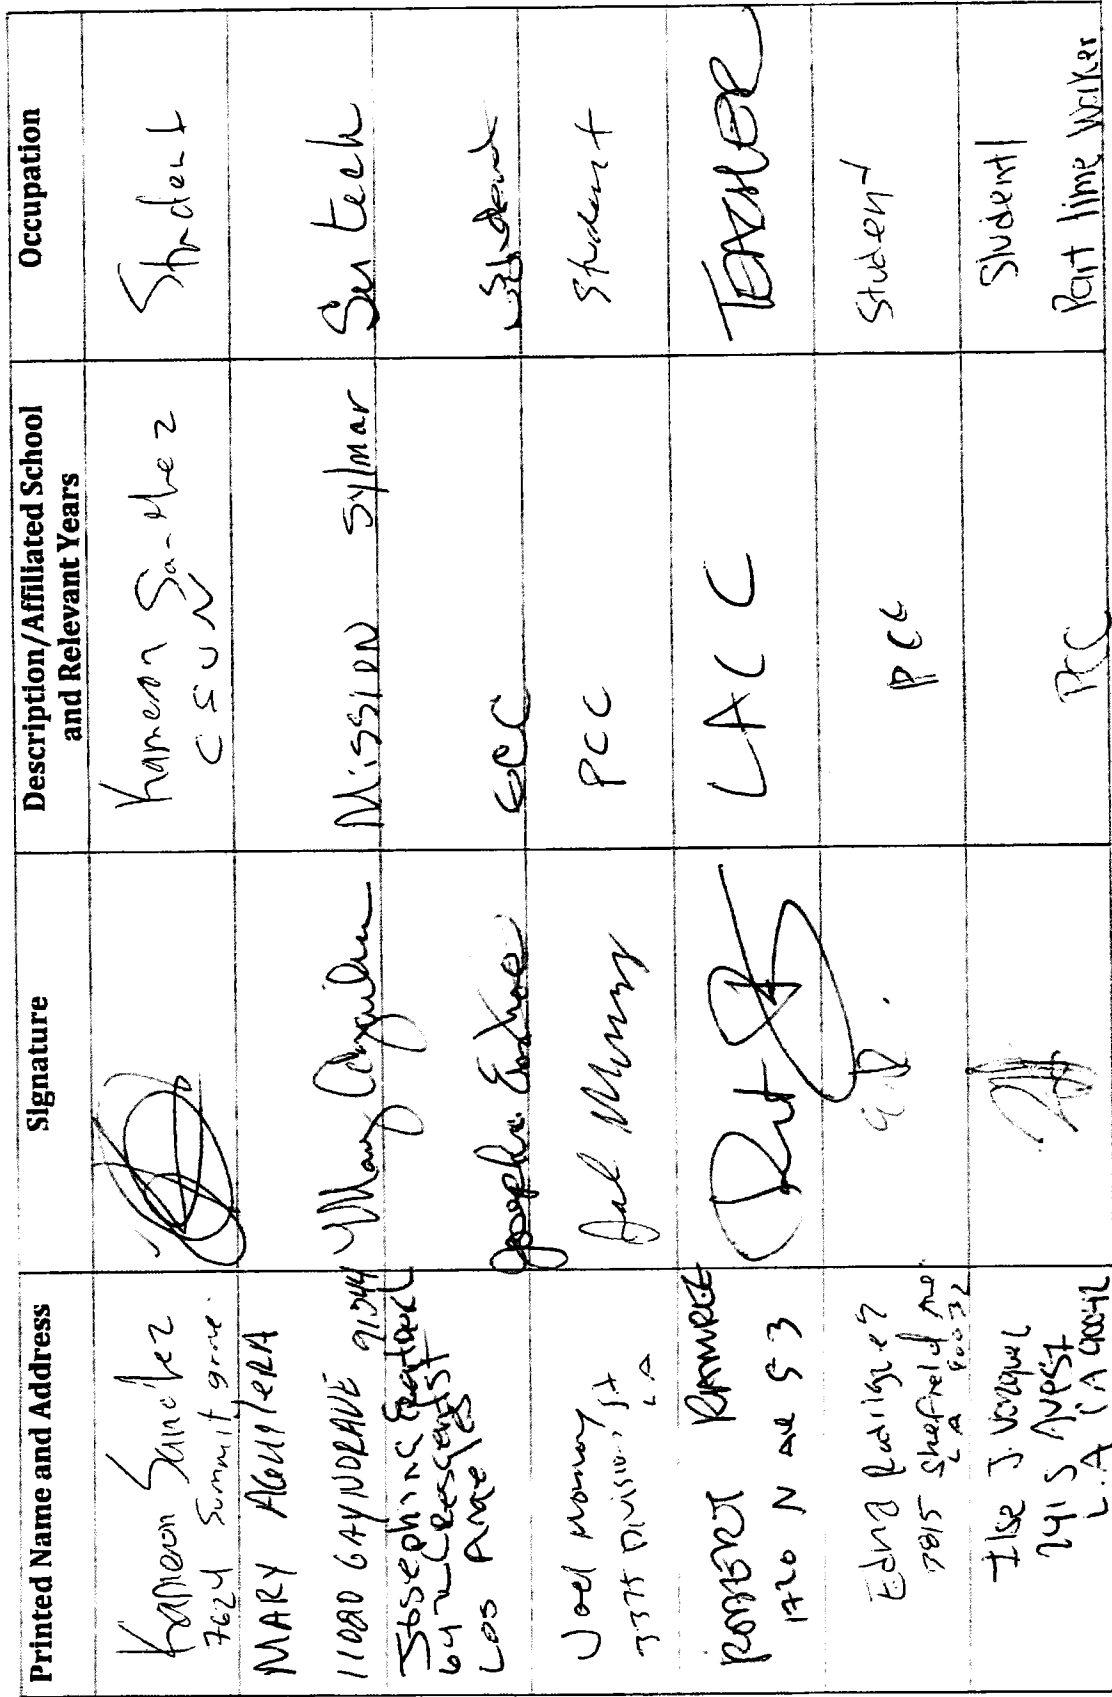 Printed Name and Address
Signature
Description/Affiliated School
and Relevant Years
Occupation
Kameron Sanchez
7624 Summit grove
Kameron Sanchez
CSUN
Student
MARY AGUILERA
11080 GAYNORAVE 91344
Mary Aguilera
Mission Sylmar
Sur tech
Josephine
64 n Crescent St
Los Angeles
Josephine
GCC
Student
Joel
3375 Division St
LA
Joel
PCC
Student
ROBERT RAMIREZ
1720 N Ave 53
LACC
TEACHER
Edna Rodriguez
7815 Sheffield Ave
LA 90032
PCC
Student
Ilse J. Vazquez
241 S Ave 57
L.A CA 90042
PCC
Student/
Part time Worker